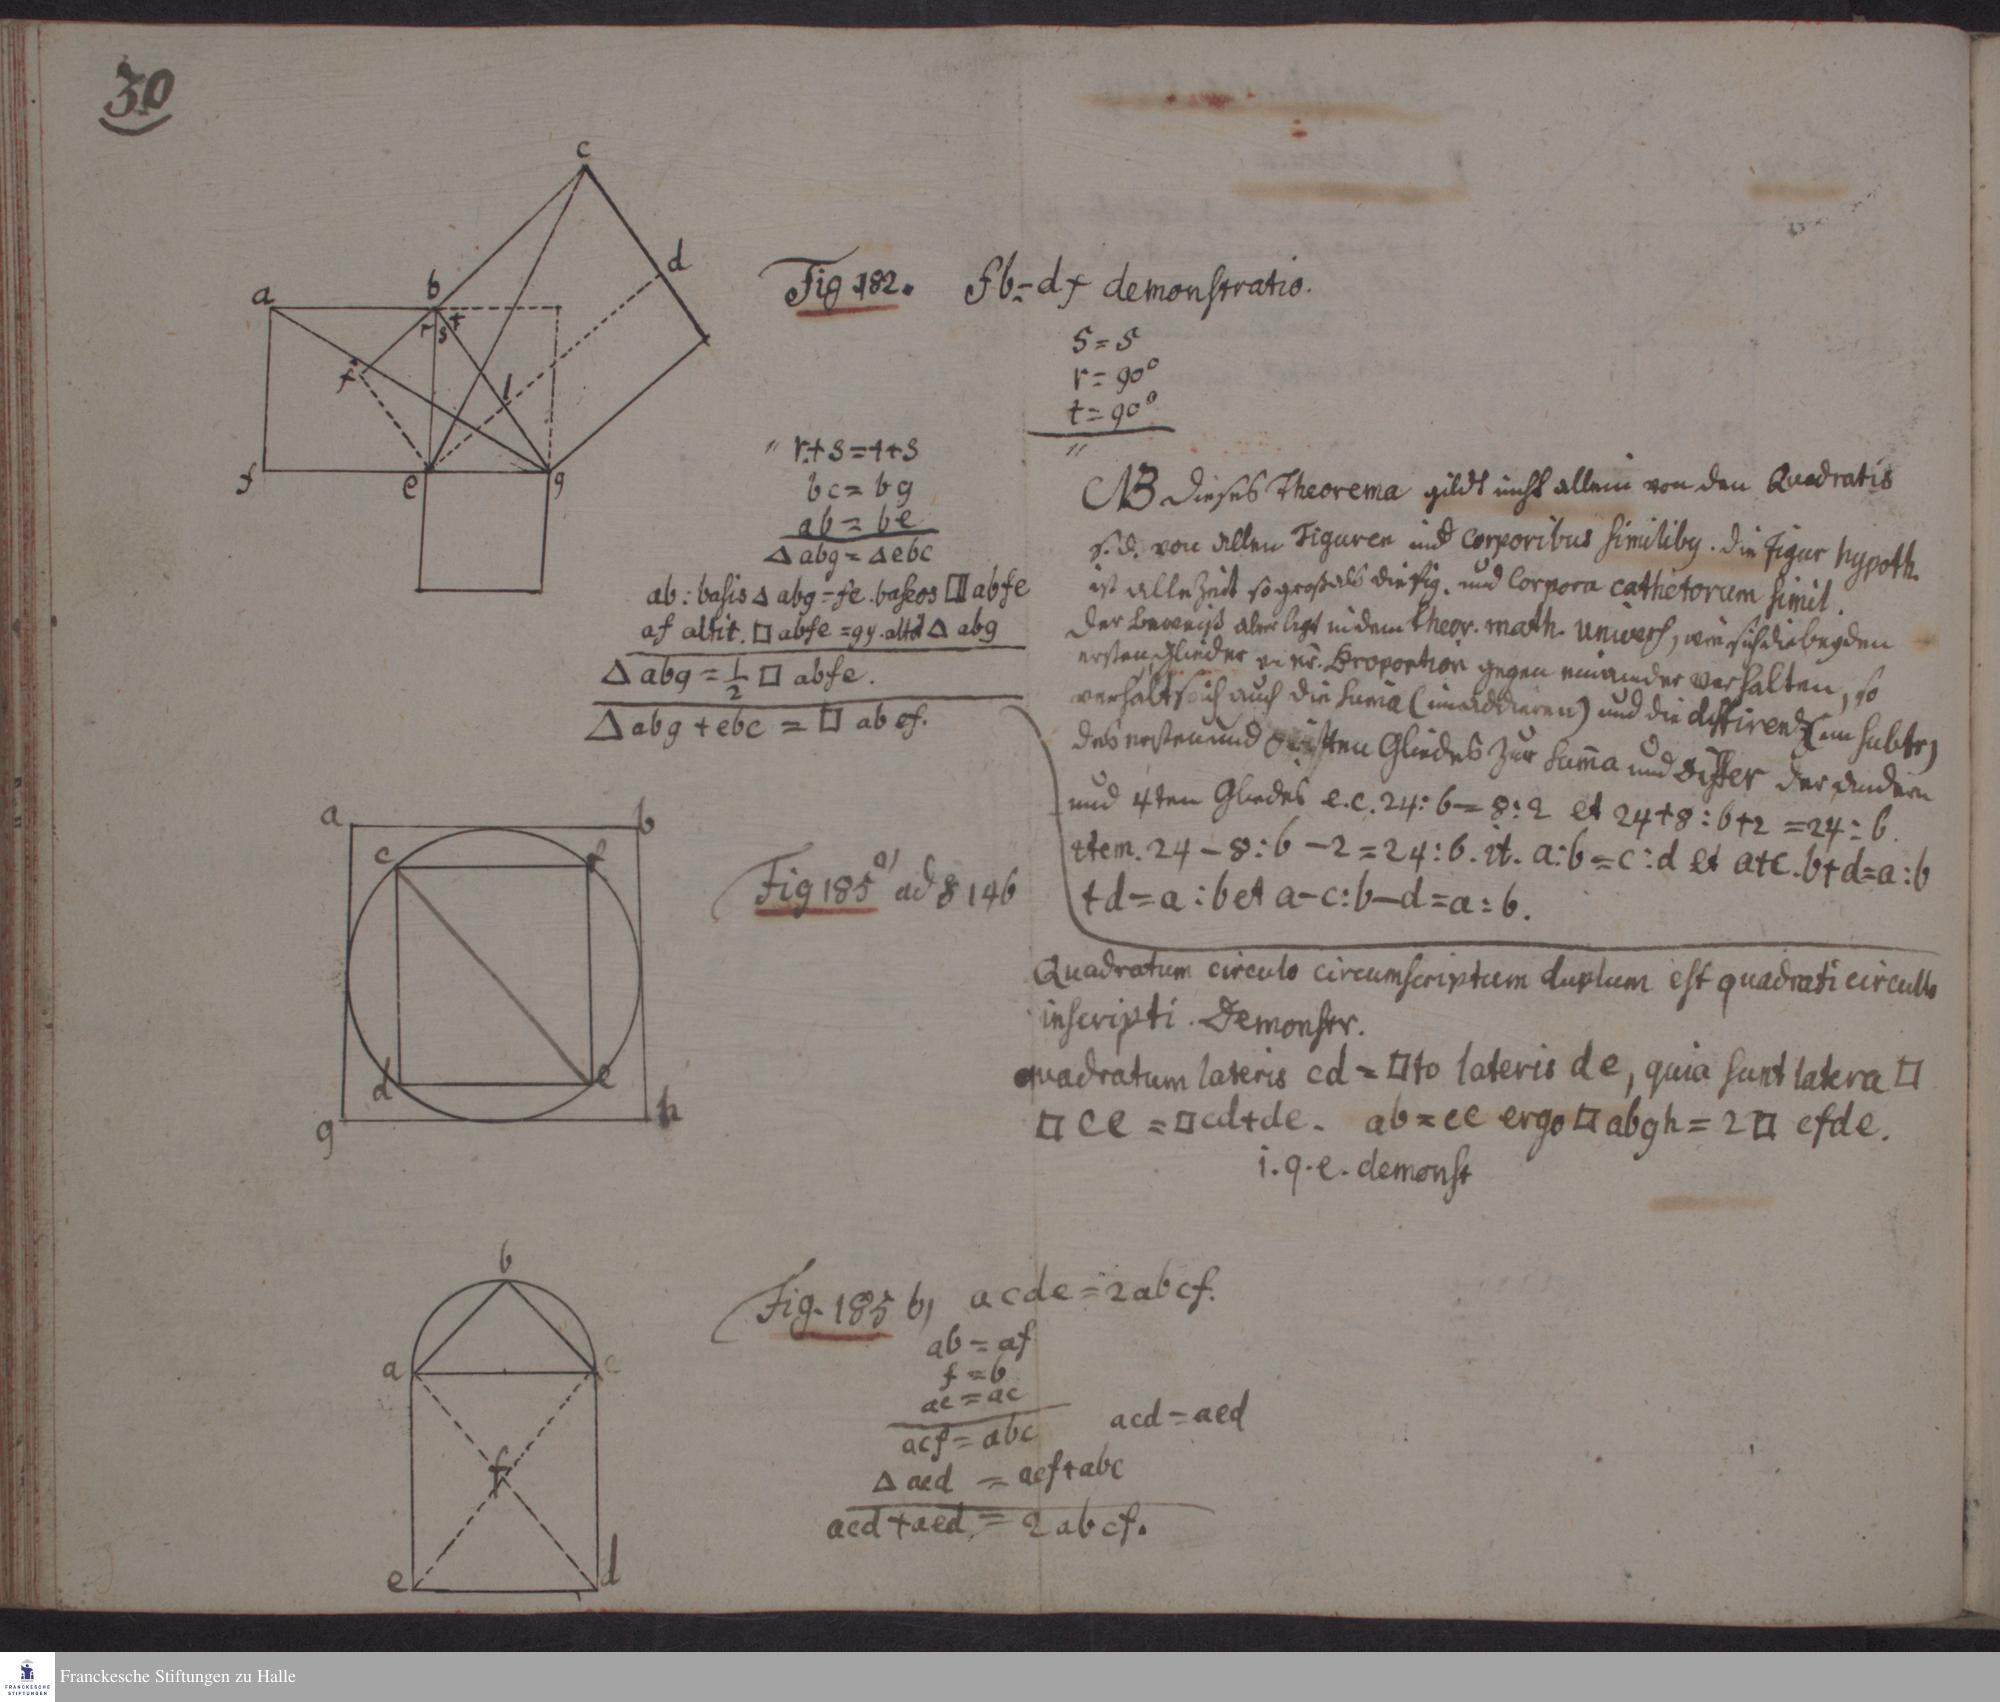 30
c
d
b
a
r s t
f
l
f
e
g
Fig 182. fb = df demonstratio.
s = s
r = 90°
t = 90°
" r + s = t + s
bc = bg
ab = be
Δ abg = Δ ebc
ab : basis Δ abg = fe . baseos □ abfe
af altit. □ abfe = gy . altd Δ abg
Δ abg = 1/2 □ abfe.
Δ abg + ebc = □ ab ef.
NB Dieses Theorema gildt nicht allein von den Quadratis
s. d. von allen Figuren und Corporibus similiby. die Figur hypoth.
ist alle Zeit so groß als die fig. und Corpora cathetorum simil.
Der Beweiß aber ligt in dem Theor. math. univers, wie sich die beyden
ersten Glieder einer Proportion gegen einander verhalten, so
verhält sich auch die Suma (im addieren) und die differenz (im subtr)
des ersten und dritten Gliedes zur Suma und Differ der andern
und 4ten Gliedes e.c. 24 : 6 = 8 : 2 et 24 + 8 : 6 + 2 = 24 : 6.
item. 24 – 8 : 6 – 2 = 24 : 6. it. a : b = c : d et a + c . b + d = a : b
+ d = a : b et a – c : b – d = a : b.
a
b
c
f
d
e
g
h
Fig 185 a) ad § 146
Quadratum circulo circumscriptum duplum est quadrati circulo
inscripti. Demonstr.
quadratum lateris cd = □to lateris de, quia sunt latera □
□ ce = □ cd + de. ab = ce ergo □ abgh = 2 □ cfde.
i. q. e. demonst
b
a
c
f
e
d
Fig. 185 b) acde = 2 abcf.
ab = af
f = b
ac = ac
acf = abc acd = aed
Δ aed = acf + abc
acd + aed = 2 abcf.
Franckesche Stiftungen zu Halle
FRANCKESCHE
STIFTUNGEN